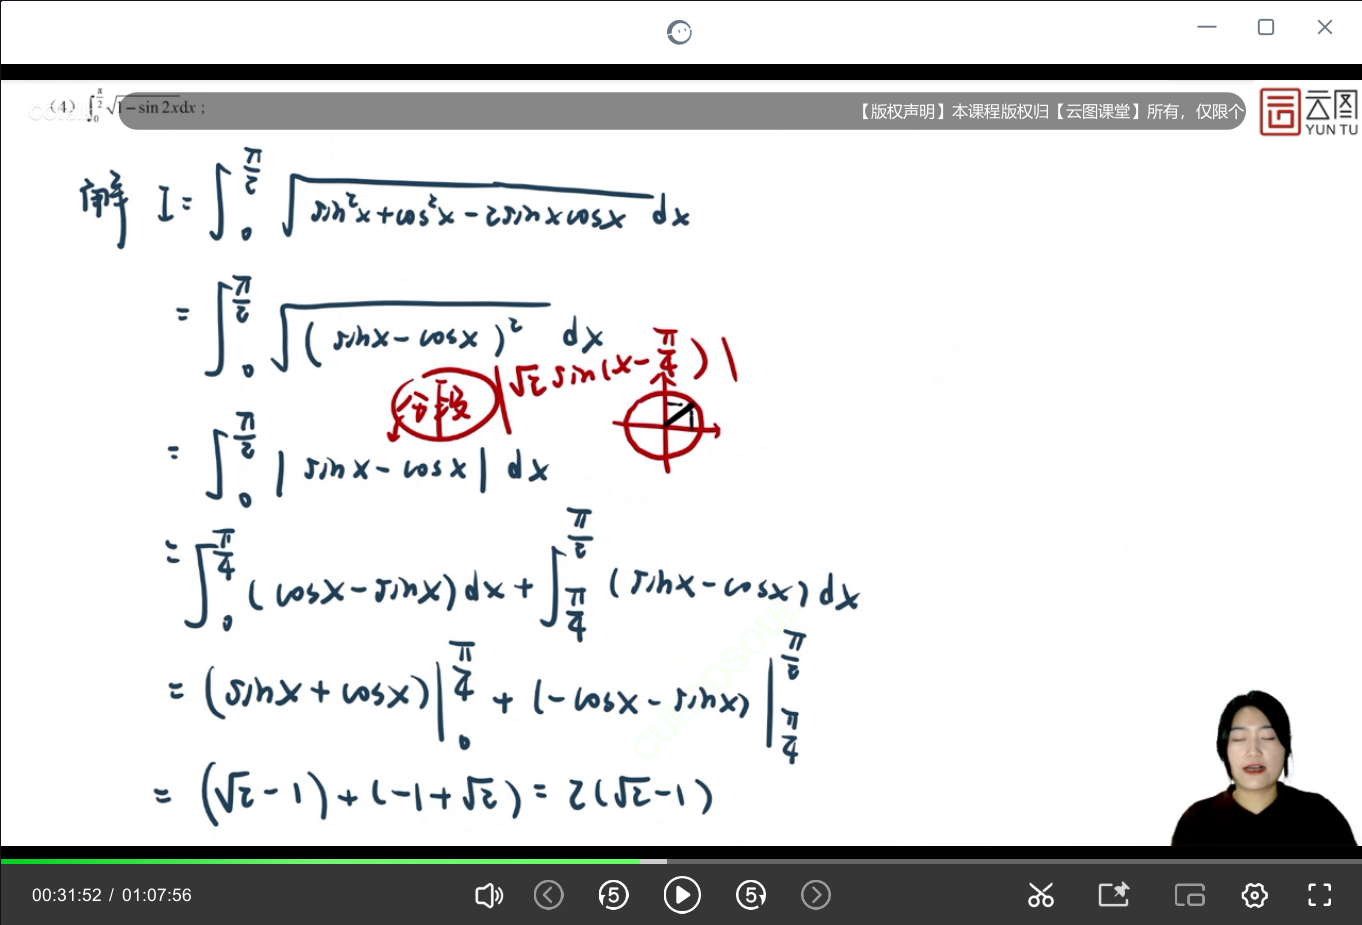 (4) ∫₀^{π/2} √(1−sin 2x)dx;
【版权声明】本课程版权归【云图课堂】所有，仅限个
云图
YUN TU
解 I = ∫₀^{π/2} √(sin²x+cos²x−2sinxcosx) dx
= ∫₀^{π/2} √((sinx−cosx)²) dx
分段 |√2 sin(x−π/4)|
= ∫₀^{π/2} |sinx−cosx| dx
= ∫₀^{π/4} (cosx−sinx)dx + ∫_{π/4}^{π/2} (sinx−cosx)dx
= (sinx+cosx)|₀^{π/4} + (−cosx−sinx)|_{π/4}^{π/2}
= (√2−1)+(−1+√2) = 2(√2−1)
00:31:52 / 01:07:56
5
5